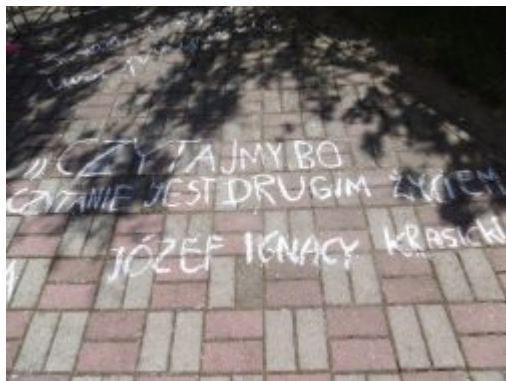 „CZYTAJMY BO
CZYTANIE JEST DRUGIM ŻYCIEM
JÓZEF IGNACY KRASICKI